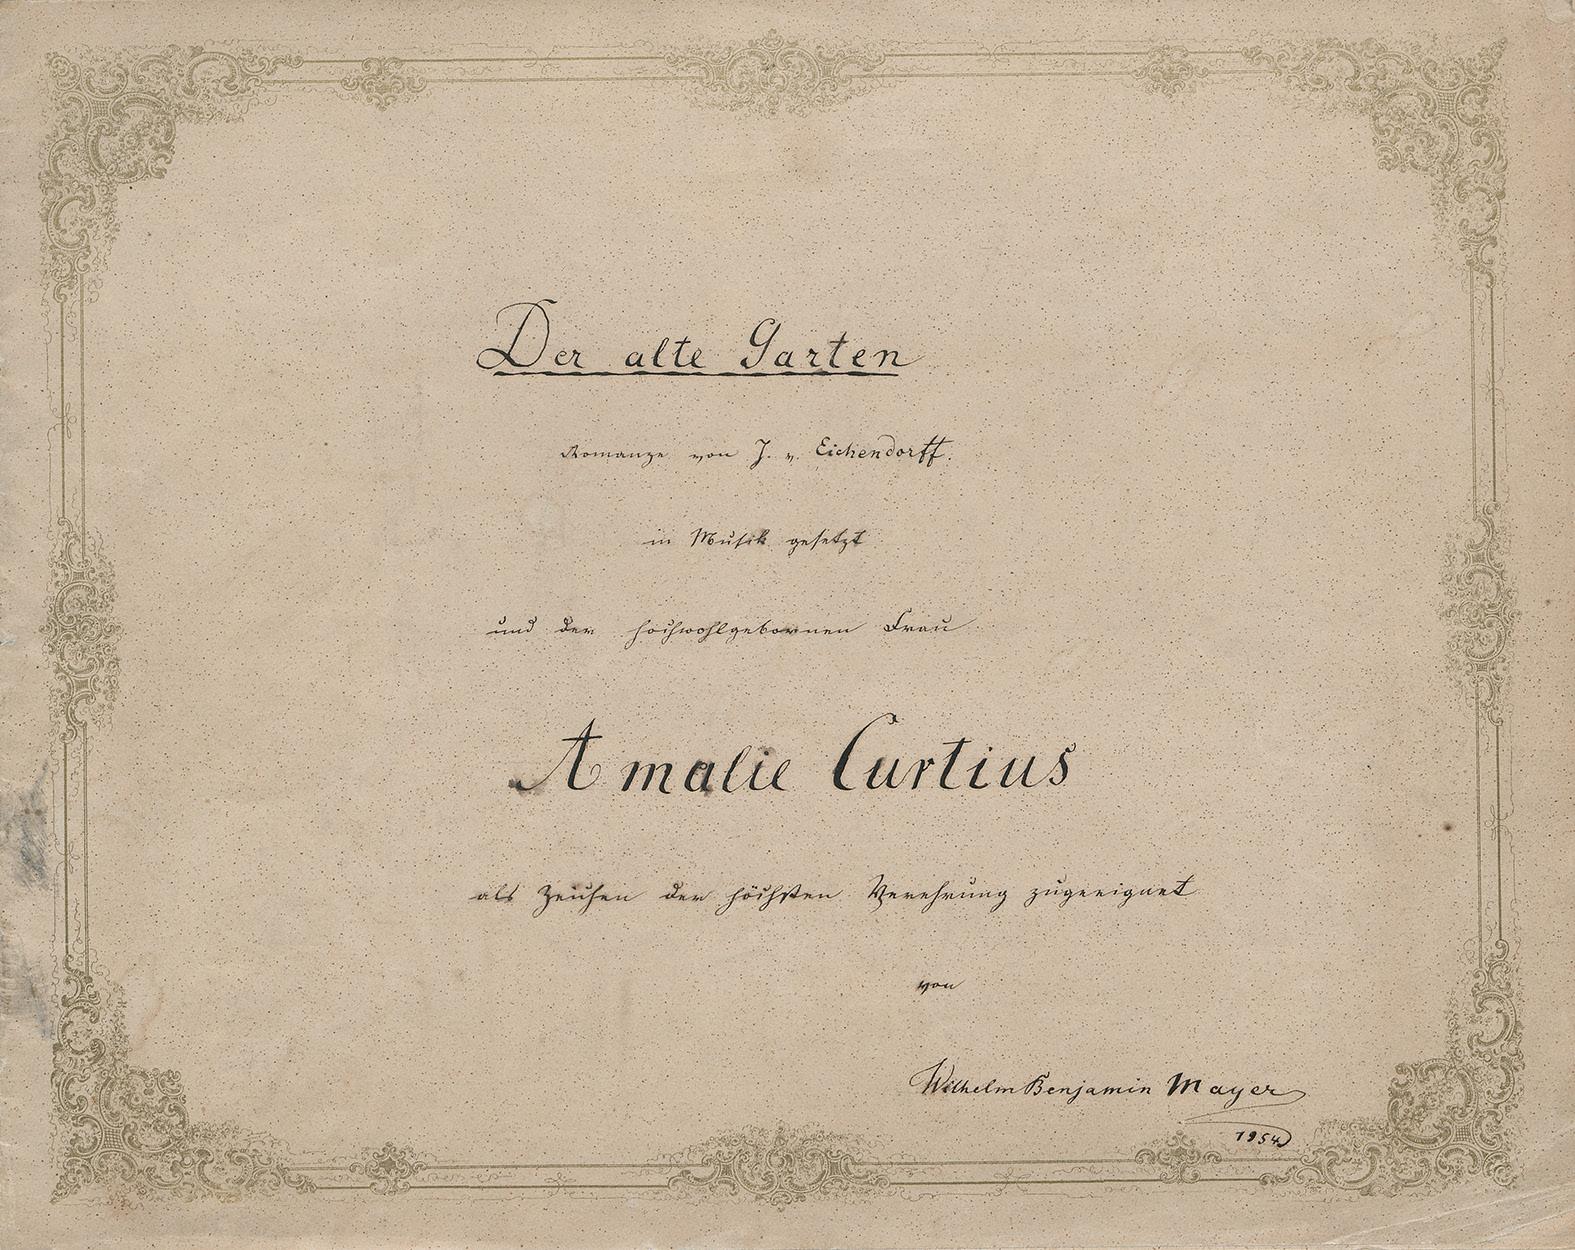 Der alte Garten
Romanze von J. v. Eichendorff.
in Musik gesetzt
und der hochwohlgebornen Frau
Amalie Curtius
als Zeichen der höchsten Verehrung zugeeignet
von
Wilhelm Benjamin Mayer
1954